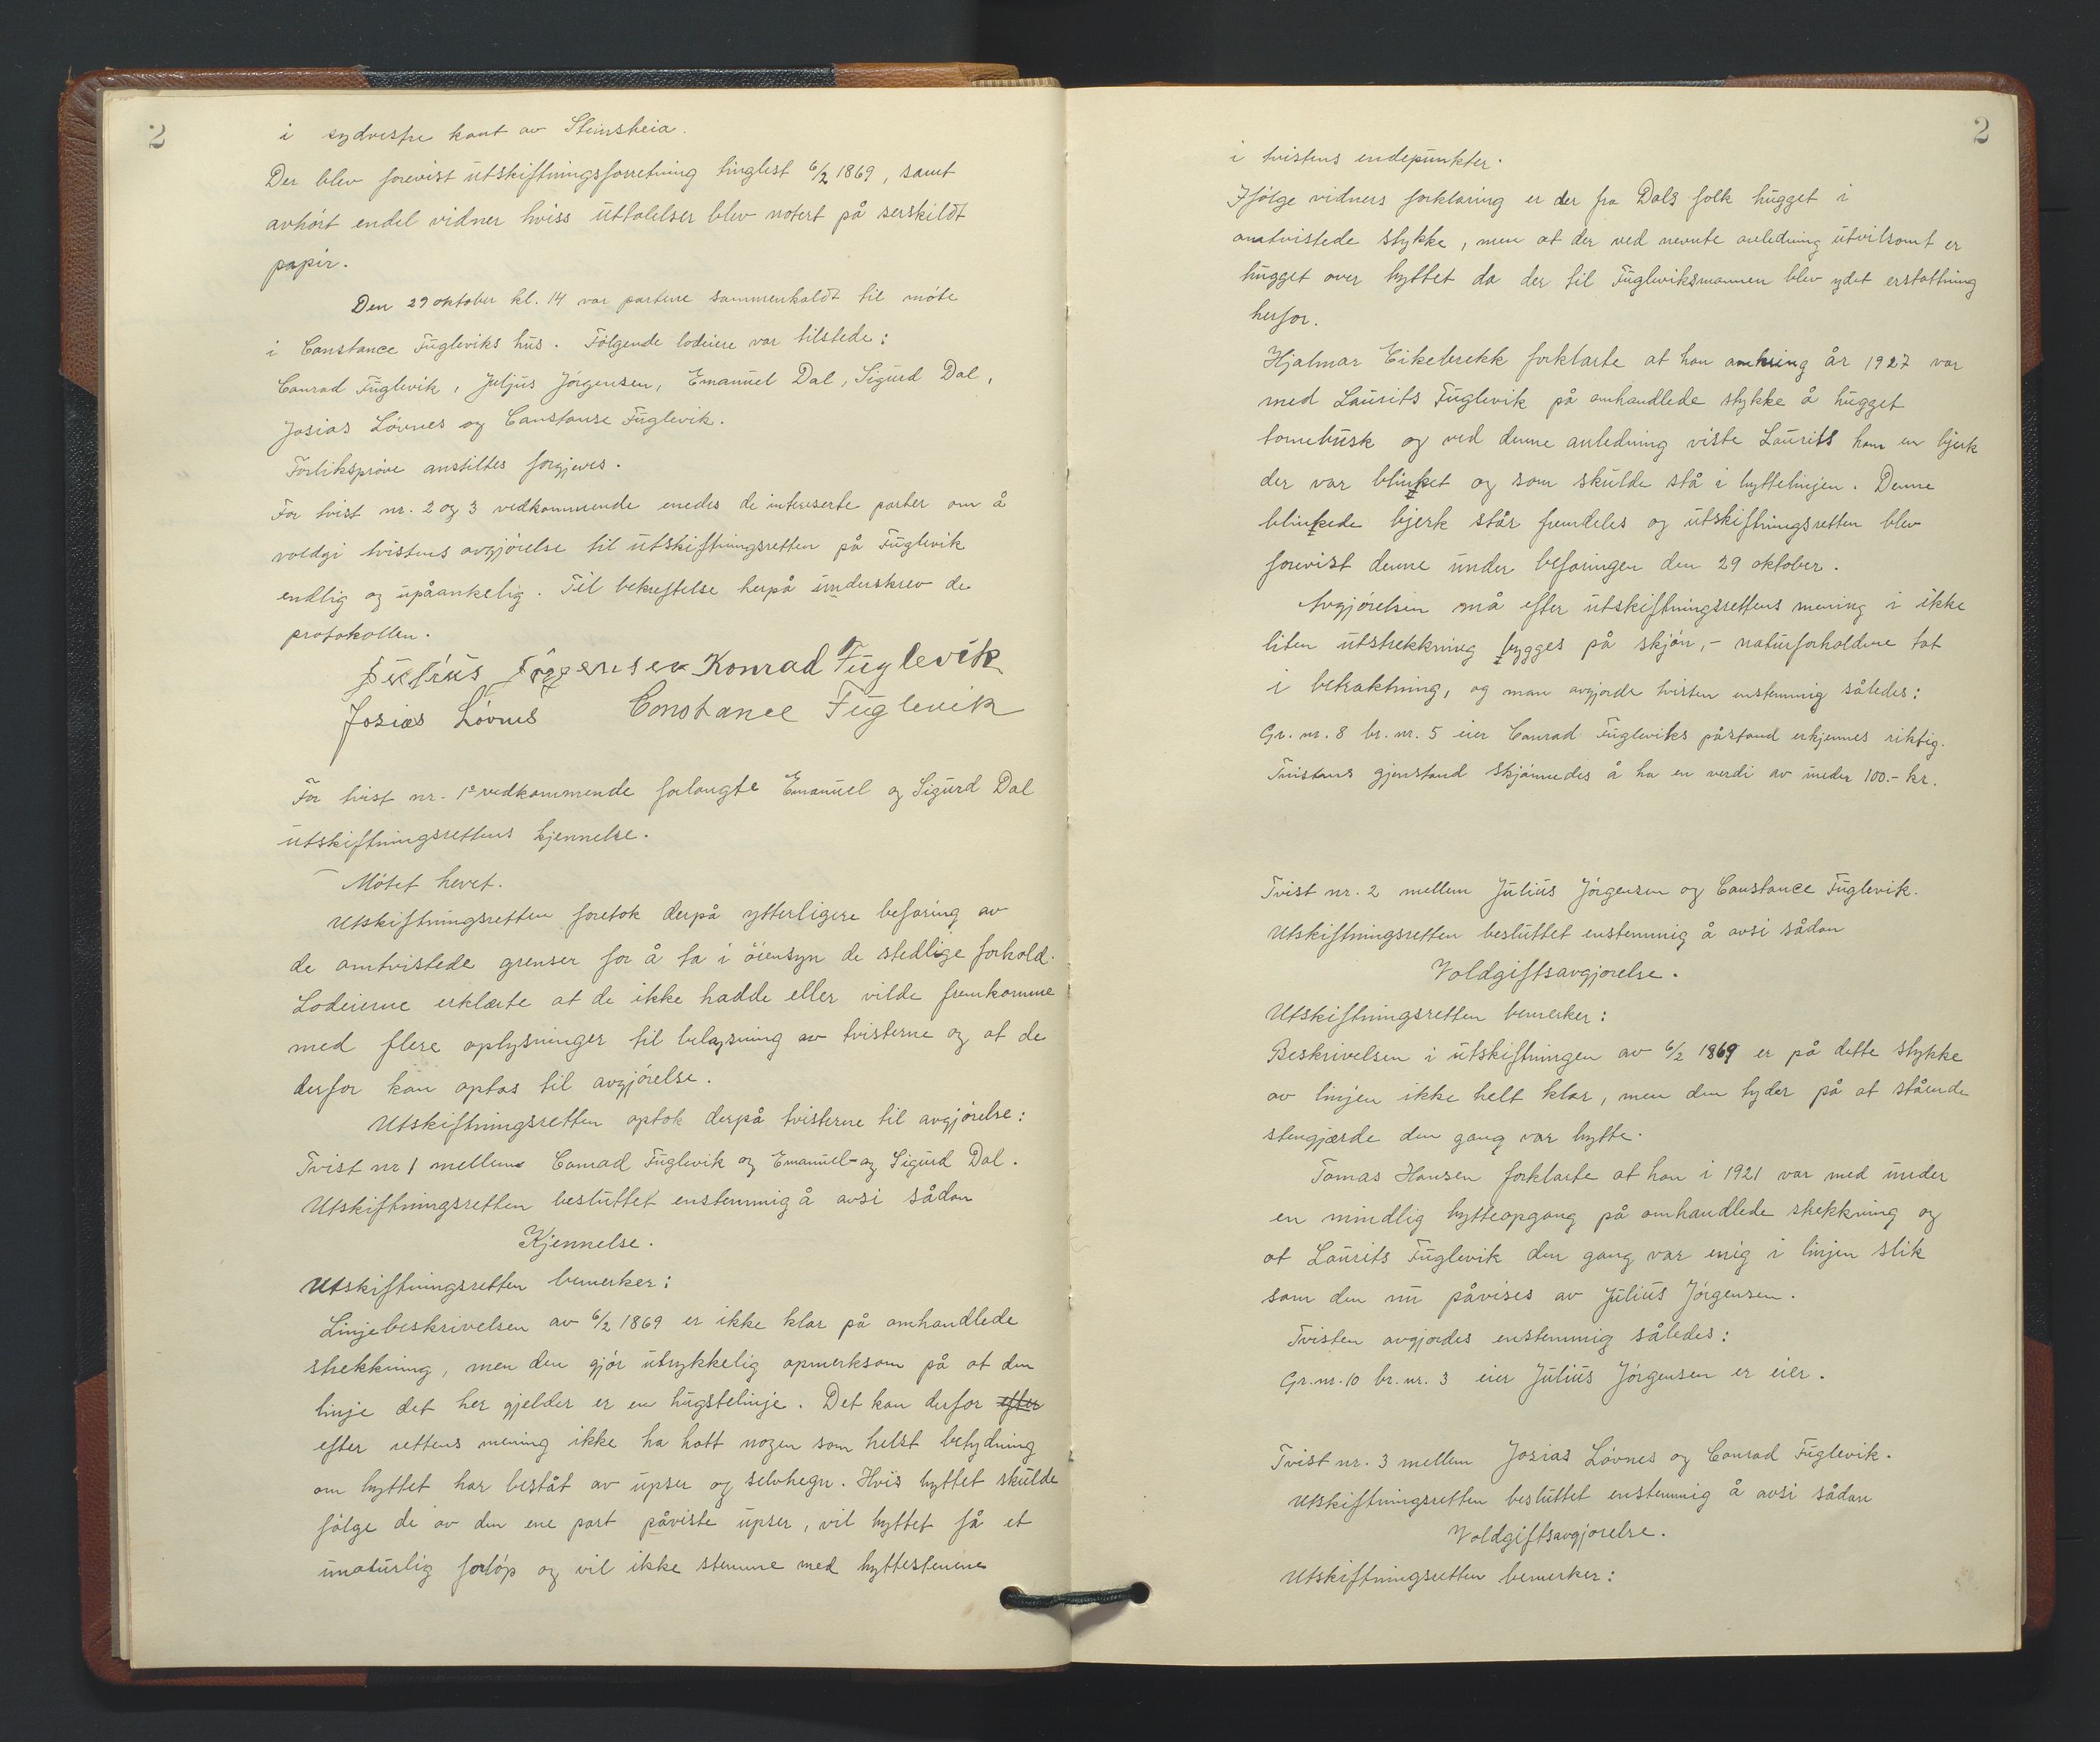 2
i sydvestre kant av Steinsheia.
Der blev forevist utskiftningsforretning tinglest 6/2 1869, samt
avhørt endel vidner hviss uttalelser blev notert på serskildt
papir.
Den 29 oktober kl. 14 var partene sammenkaldt til møte
i Constance Fugleviks hus. Følgende lodeiere var tilstede:
Conrad Fuglevik, Juljus Jørgensen, Emanuel Dal, Sigurd Dal,
Josias Løvnes og Constanse Fuglevik.
Forliksprøve anstiltes forgjeves.
For tvist nr. 2 og 3 vedkommende enedes de intereserte parter om å
voldgi tvistens avgjørelse til utskiftningsretten på Fuglevik
endlig og upåankelig. Til bekreftelse herpå underskrev de
protokollen.
Juljus Jørgensen Konrad Fuglevik
Josias Løvnes Constance Fuglevik
For tvist nr. 1 vedkommende forlangte Emanuel og Sigurd Dal
utskiftningsrettens kjennelse.
Møtet hevet.
Utskiftningsretten foretok derpå ytterligere befaring av
de omtvistede grenser for å ta i öiensyn de stedlige forhold.
Lodeierne erklærte at de ikke hadde eller vilde fremkomme
med flere oplysninger til belysning av tvisterne og at de
derfor kan optas til avgjørelse.
Utskiftningsretten optok derpå tvisterne til avgjørelse:
Tvist nr 1 mellem Conrad Fuglevik og Emanuel- og Sigurd Dal.
Utskiftningsretten besluttet enstemmig å avsi sådan
Kjennelse.
Utskiftningsretten bemerker:
Linjebeskrivelsen av 6/2 1869 er ikke klar på omhandlede
strekkning, men den gjør utrykkelig opmerksom på at den
linje det her gjelder er en hugstelinje. Det kan derfor efter
efter rettens mening ikke ha hatt nogen som helst betydning
om byttet har beståt av upser og selvhegn. Hvis byttet skulde
følge de av den ene part påviste upser, vil byttet få et
unaturlig forløp og vil ikke stemme med byttestenene
2
i tvistens endepunkter.
Ifølge vidners forklaring er der fra Dals folk hugget i
omtvistede stykke, men at der ved nevnte anledning utvilsomt er
hugget over byttet da der til Fugleviksmannen blev ydet erstattning
herfor.
Hjalmar Eikebrekk forklarte at han omkring år 1927 var
med Laurits Fuglevik på omhandlede stykke å hugget
tonebusk og ved denne anledning viste Laurits ham en bjerk
der var blinket og som skulde stå i byttelinjen. Denne
blinkede bjerk står fremdeles og utskiftningsretten blev
forevist denne under befaringen den 29 oktober.
Avgjørelsen må efter utskiftningsrettens mening i ikke
liten utstrekkning bygges på skjøn, - naturforholdene tat
i betraktning, og man avgjorde tvisten enstemmig således:
Gr. nr. 8 br. nr. 5 eier Conrad Fugleviks påstand erkjennes riktig.
Tvistens gjenstand skjønnedes å ha en verdi av under 100.- kr.
Tvist nr. 2 mellem Julius Jørgensen og Constance Fuglevik.
Utskiftningsretten besluttet enstemmig å avsi sådan
Voldgiftsavgjørelse.
Utskiftningsretten bemerker:
Beskrivelsen i utskiftningen av 6/2 1869 er på dette stykke
av linjen ikke helt klar, men den tyder på at stående
stengjærde den gang var bytte.
Tomas Hansen forklarte at han i 1921 var med under
en mindlig bytteopgang på omhandlede strekkning og
at Laurits Fuglevik den gang var enig i linjen slik
som den nu påvises av Julius Jørgensen.
Tvisten avgjordes enstemmig således:
Gr. nr. 10 br. nr. 3 eier Julius Jørgensen er eier.
Tvist nr. 3 mellem Josias Løvnes og Conrad Fuglevik.
Utskiftningsretten besluttet enstemmig å avsi sådan
Voldgiftsavgjørelse.
Utskiftningsretten bemerker: